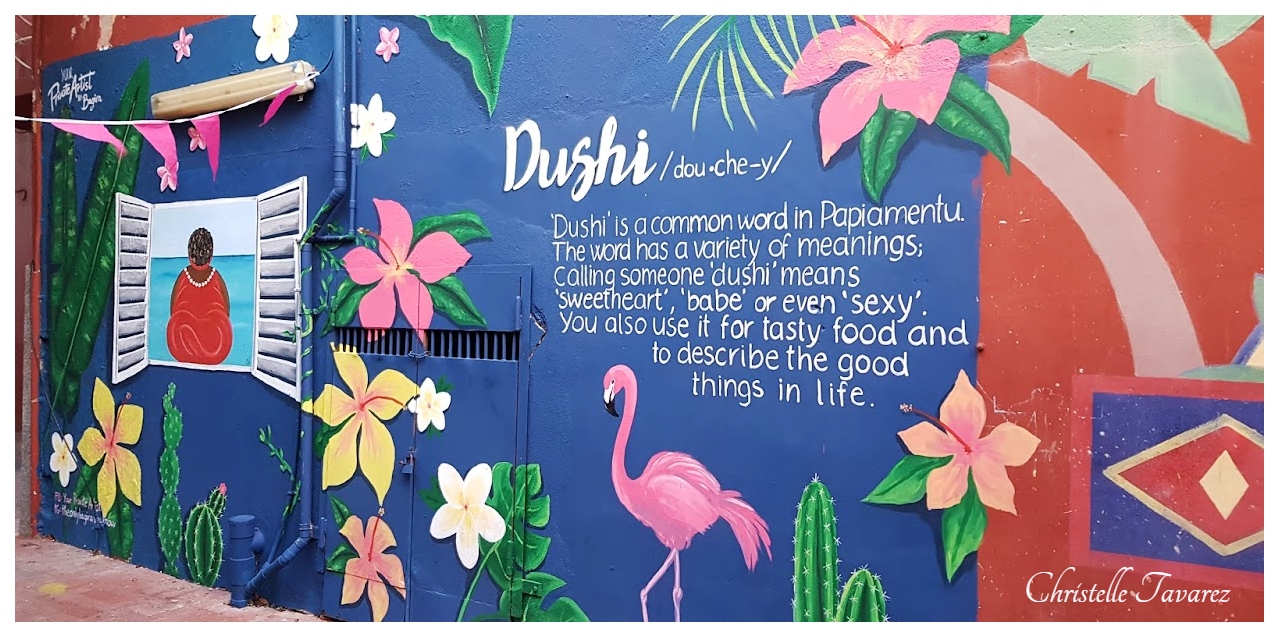 Your
Private Artist
by Bagira
Dushi /dou•che-y/
'Dushi' is a common word in Papiamentu.
The word has a variety of meanings;
Calling someone 'dushi' means
'sweetheart', 'babe' or even 'sexy'.
You also use it for tasty food and
to describe the good
things in life.
Christelle Tavarez